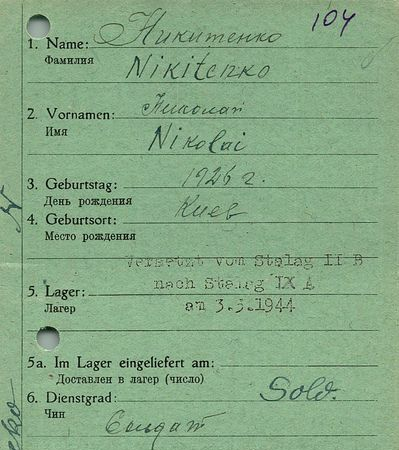 104
1. Name: Никитенко
Фамилия
Nikitenko
2. Vornamen: Николай
Имя
Nikolai
3. Geburtstag: 1926 г.
День рождения
4. Geburtsort: Киев
Место рождения
Versetzt vom Stalag II B
nach Stalag IX A
5. Lager:
am 3.3.1944
Лагер
5a. Im Lager eingeliefert am:
Доставлен в лагер (число)
6. Dienstgrad: Sold.
Чин
Солдат